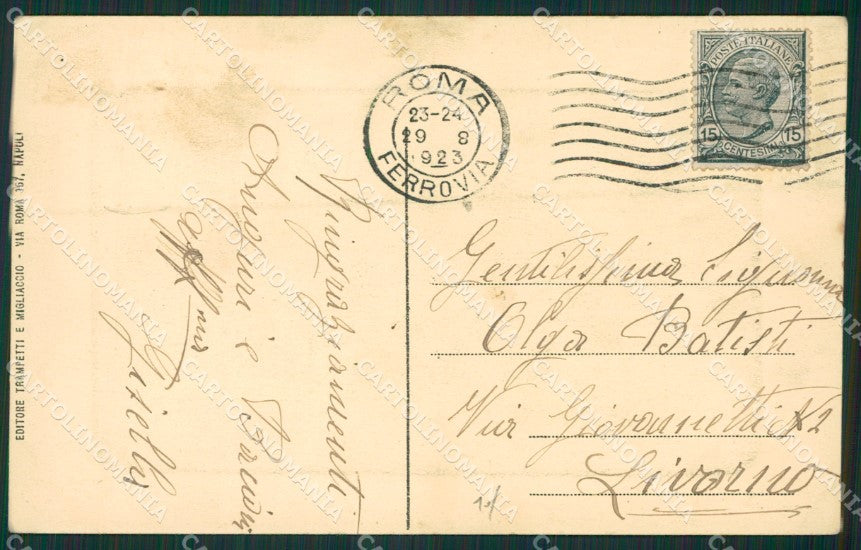 ROMA
23-24
29 8
923
FERROVIA
POSTE ITALIANE
15 15
CENTESIMI
EDITORE TRAMPETTI E MIGLIACCIO - VIA ROMA 167, NAPOLI
Ringraziamenti
Auguri e Bacioni
aff.ma
Gisella
Gentilissima Signorina
Olga Batisti
Via Giovannetti N 2
Livorno
CARTOLINOMANIA